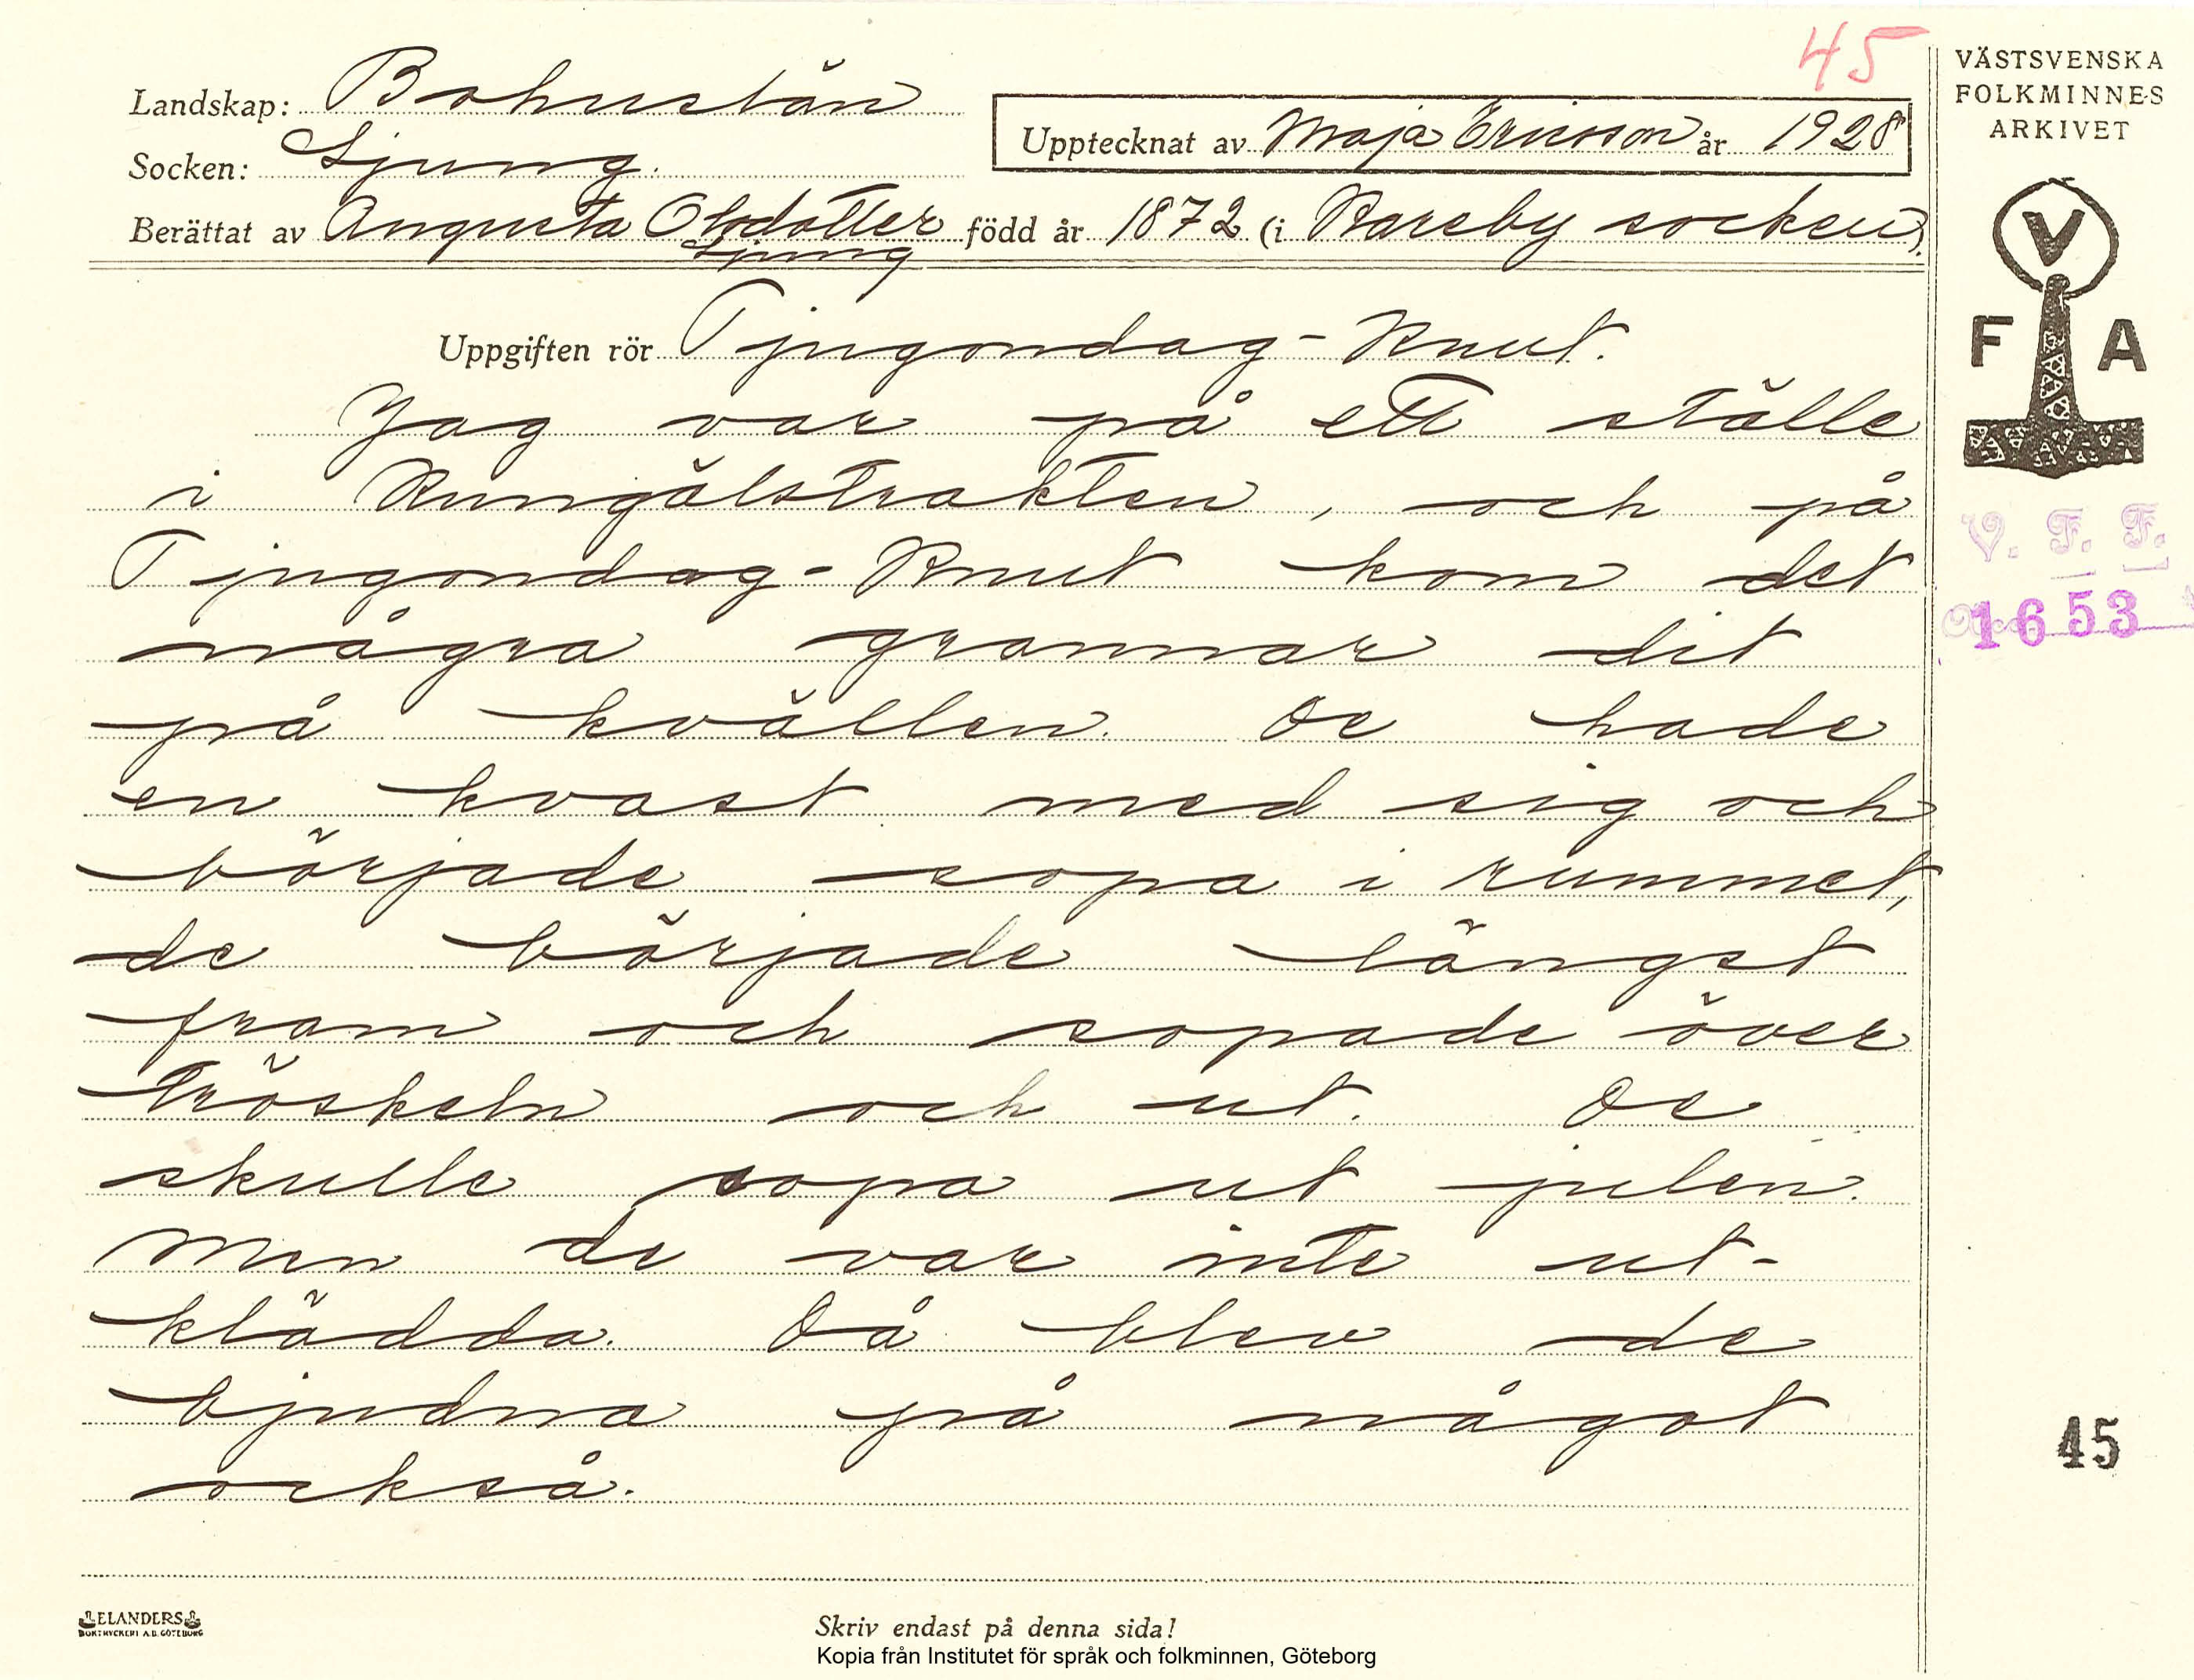 45
Landskap: Bohuslän
Socken: Ljung.
Upptecknat av Maja Ericsson år 1928
Berättat av Augusta Olsdotter född år 1872 (i Kareby socken).
Ljung
Uppgiften rör Tjugondag-Knut.
Jag var på ett ställe
i Kungälvstrakten, och på
Tjugondag-Knut kom det
några grannar dit
på kvällen. De hade
en kvast med sig och
började sopa i rummet,
de började längst
fram och sopade över
tröskeln och ut. De
skulle sopa ut julen.
Men de var inte ut-
klädda. Då blev de
bjudna på något
också.
VÄSTSVENSKA
FOLKMINNES
ARKIVET
V
F A
V. F. F.
1653
45
ELANDERS
BOKTRYCKERI A.B. GÖTEBORG
Skriv endast på denna sida!
Kopia från Institutet för språk och folkminnen, Göteborg